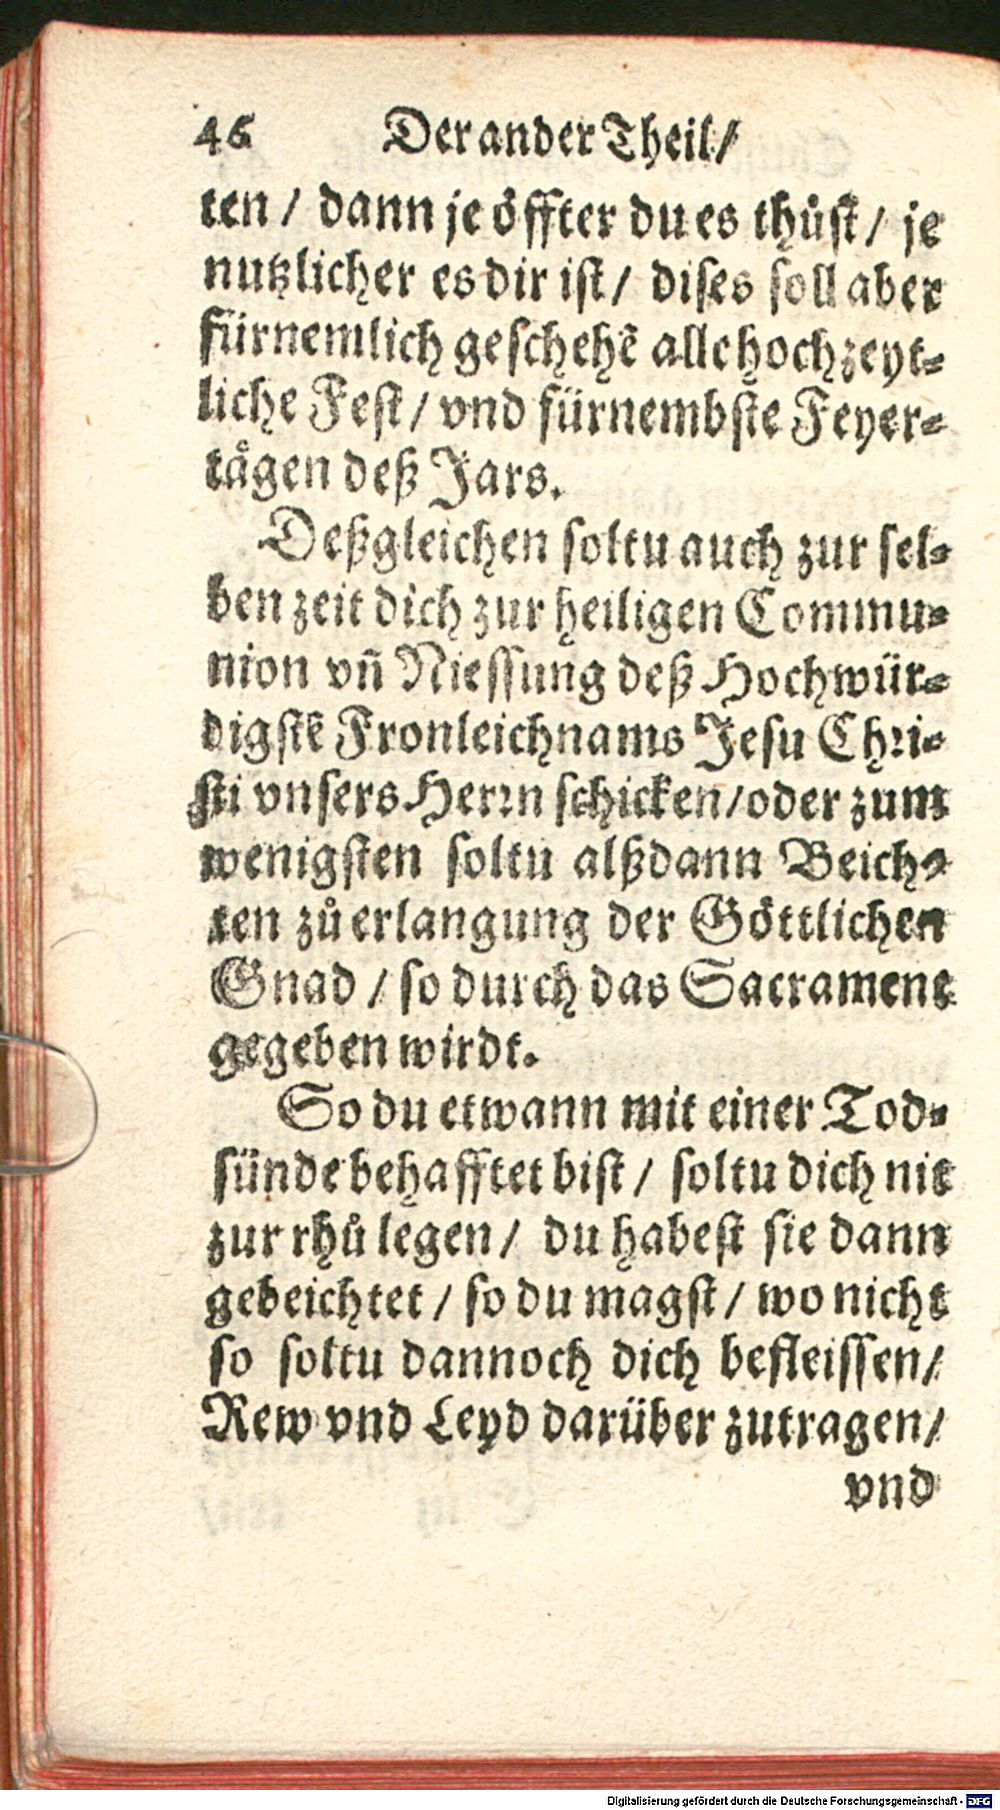 46 Der ander Theil/
ten / dann je oͤffter du es thuͦst / je
nutzlicher es dir ist / dises soll aber
fürnemlich geschehẽ alle hochzeyt-
liche Fest / vnd fürnembste Feyer-
taͤgen deß Jars.
Deßgleichen soltu auch zur sel-
ben zeit dich zur heiligen Commu-
nion vñ Niessung deß Hochwür-
digstẽ Fronleichnams Jesu Chri-
sti vnsers Herrn schicken / oder zum
wenigsten soltu alßdann Beich-
ten zuͦ erlangung der Goͤttlichen
Gnad / so durch das Sacrament
gegeben wirdt.
So du etwann mit einer Tod-
sünde behafftet bist / soltu dich nit
zur rhuͦ legen / du habest sie dann
gebeichtet / so du magst / wo nicht
so soltu dannoch dich befleissen /
Rew vnd Leyd darüber zutragen /
vnd
Digitalisierung gefördert durch die Deutsche Forschungsgemeinschaft - DFG